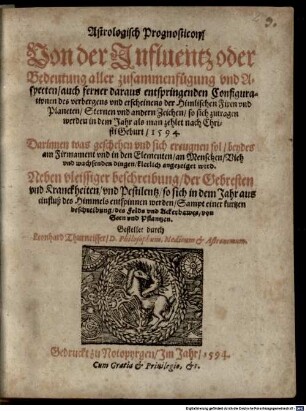 Astrologisch Prognosticon/
Von der Influentz oder
Bedeutung aller zusammenfügung vnd A-
specten/auch ferner daraus entspringenden Configura-
tionen des verbergens vnd erscheinens der Himlischen Fixen vnd
Planeten/ Sternen vnd andern Zeichen/ so sich zutragen
werden in dem Jahr als man zehlet nach Chri-
sti Geburt/1594
Darinnen was geschehen vnd sich ereugnen sol/beydes
am Firmament vnd in den Elementen/an Menschen/Vieh
vnd wachsenden dingen/ angezeiget wird.
Neben vleissiger beschreibung/der Gebresten
vnd Kranckheiten/vnd Pestilentz/so sich in dem Jahr aus
einfluß des Himmels entspinnen werden/Sampt einer kurtzen
bescheidung/des Felds vnd Ackerbawes/von
Korn vnd Pflantzen.
Gestellet durch
Leonhard Thurneisser/D. Philosophum, Medicum & Astronomum.
Gedruckt zu Notopyrgen/Im Jahr/1594.
Cum Gratia & Privilegio, &c.